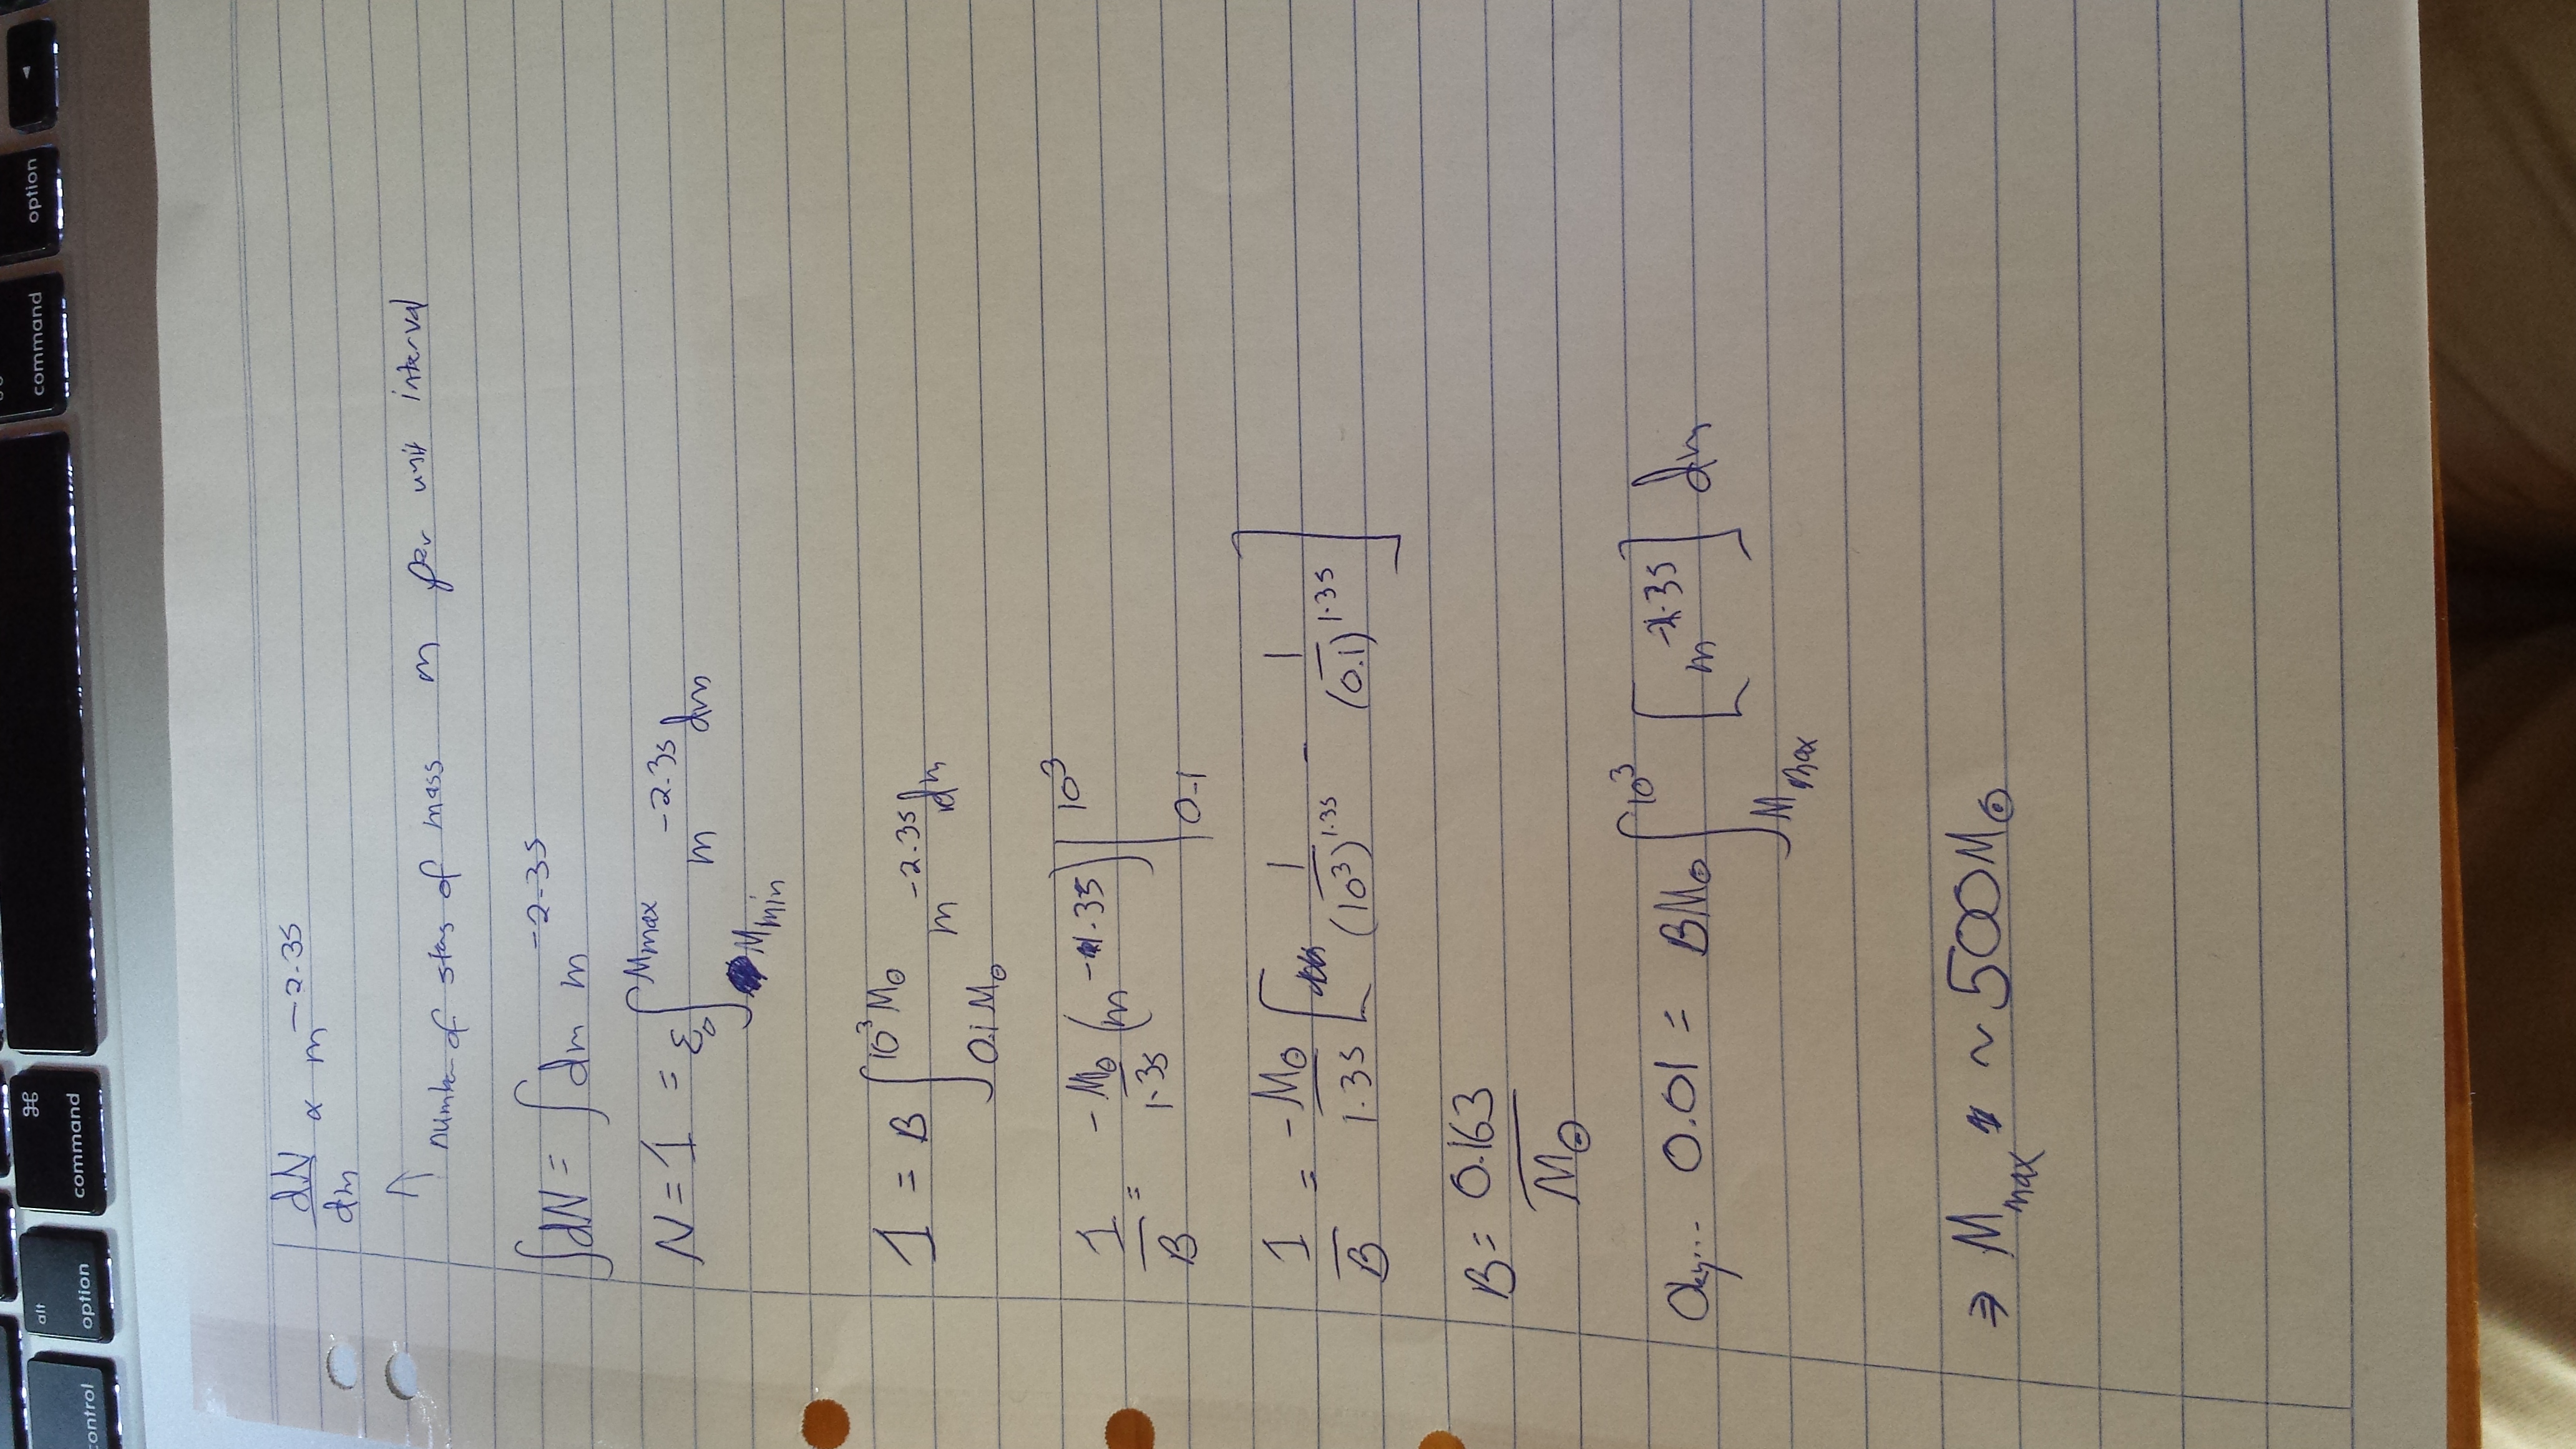 control alt option ⌘ command command option ◄
dN/dm ∝ m^-2.35
↑ number of stars of mass m per unit interval
∫dN = ∫dm m^-2.35
N = 1 = ε₀ ∫_Mmin^Mmax m^-2.35 dm
1 = B ∫_0.1 M⊙^10³ M⊙ m^-2.35 dm
1/B = -M⊙/1.35 (m^-1.35) |_0.1^10³
1/B = -M⊙/1.35 [ 1/(10³)^1.35 - 1/(0.1)^1.35 ]
B = 0.163/M⊙
Okay... 0.01 = BM⊙ ∫_Mmax^10³ [m^-2.35] dm
⇒ Mmax ~ 500M⊙